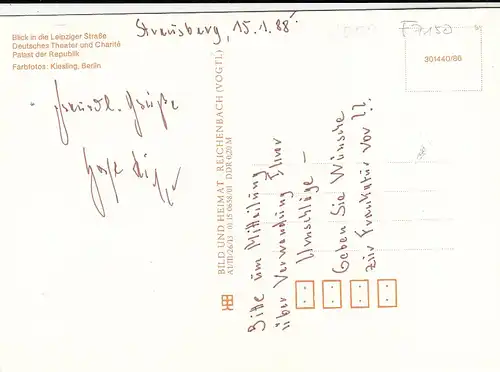 Strausberg, 15.1.88
Blick in die Leipziger Straße
Deutsches Theater und Charité
Palast der Republik
Farbfotos: Kiesling, Berlin
F7150
301440/86
Freundl. Grüße
BILD UND HEIMAT REICHENBACH (VOGTL)
A1/III/26/13 01 15 0658/01 DDR 0,20 M
Bitte um Mitteilung
über Verwendung Ihrer
Umschläge –
Geben Sie Wünsche
zur Frankatur vor ??